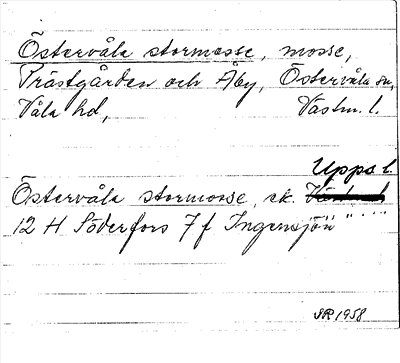 Östervåla stormosse, mosse,
Prästgården och Åby, Östervåla sn,
Våla hd, Västm. l.
Upps. l.
Östervåla stormosse, ek.
12 H Söderfors 7 f Ingensjön " "
SR 1958